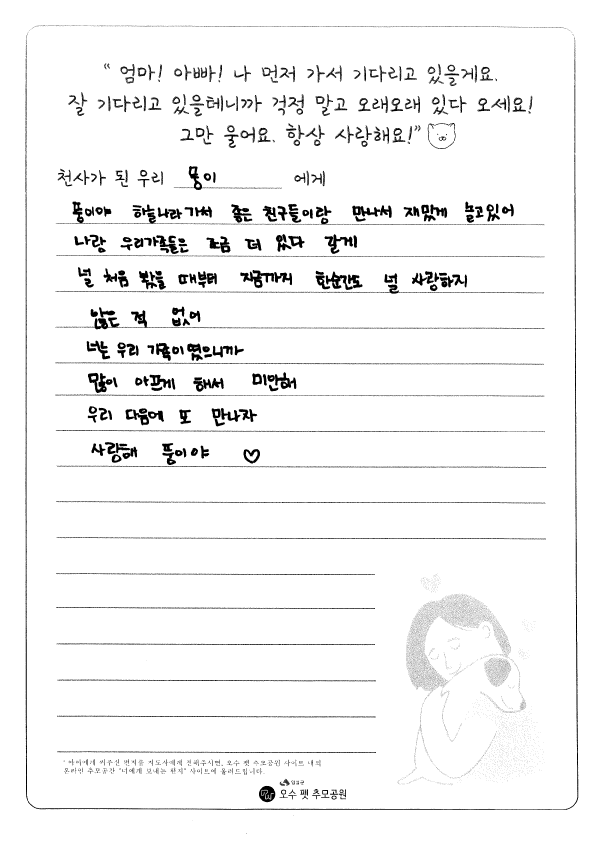 “ 엄마! 아빠! 나 먼저 가서 기다리고 있을게요.
잘 기다리고 있을테니까 걱정 말고 오래오래 있다 오세요!
그만 울어요. 항상 사랑해요!”
천사가 된 우리 뭉이 에게
풍이야 하늘나라가서 좋은 친구들이랑 만나서 재밌게 놀고있어
나랑 우리가족들은 조금 더 있다 갈게
널 처음 봤을 때부터 지금까지 한순간도 널 사랑하지
않은 적 없어
너는 우리 가족이였으니까
많이 아프게 해서 미안해
우리 다음에 또 만나자
사랑해 풍이야 ♡
* 아이에게 써주신 편지를 지도사에게 전해주시면, 오수 펫 추모공원 사이트 내의
온라인 추모공간 "너에게 보내는 편지" 사이트에 올려드립니다.
임실군
오수 펫 추모공원